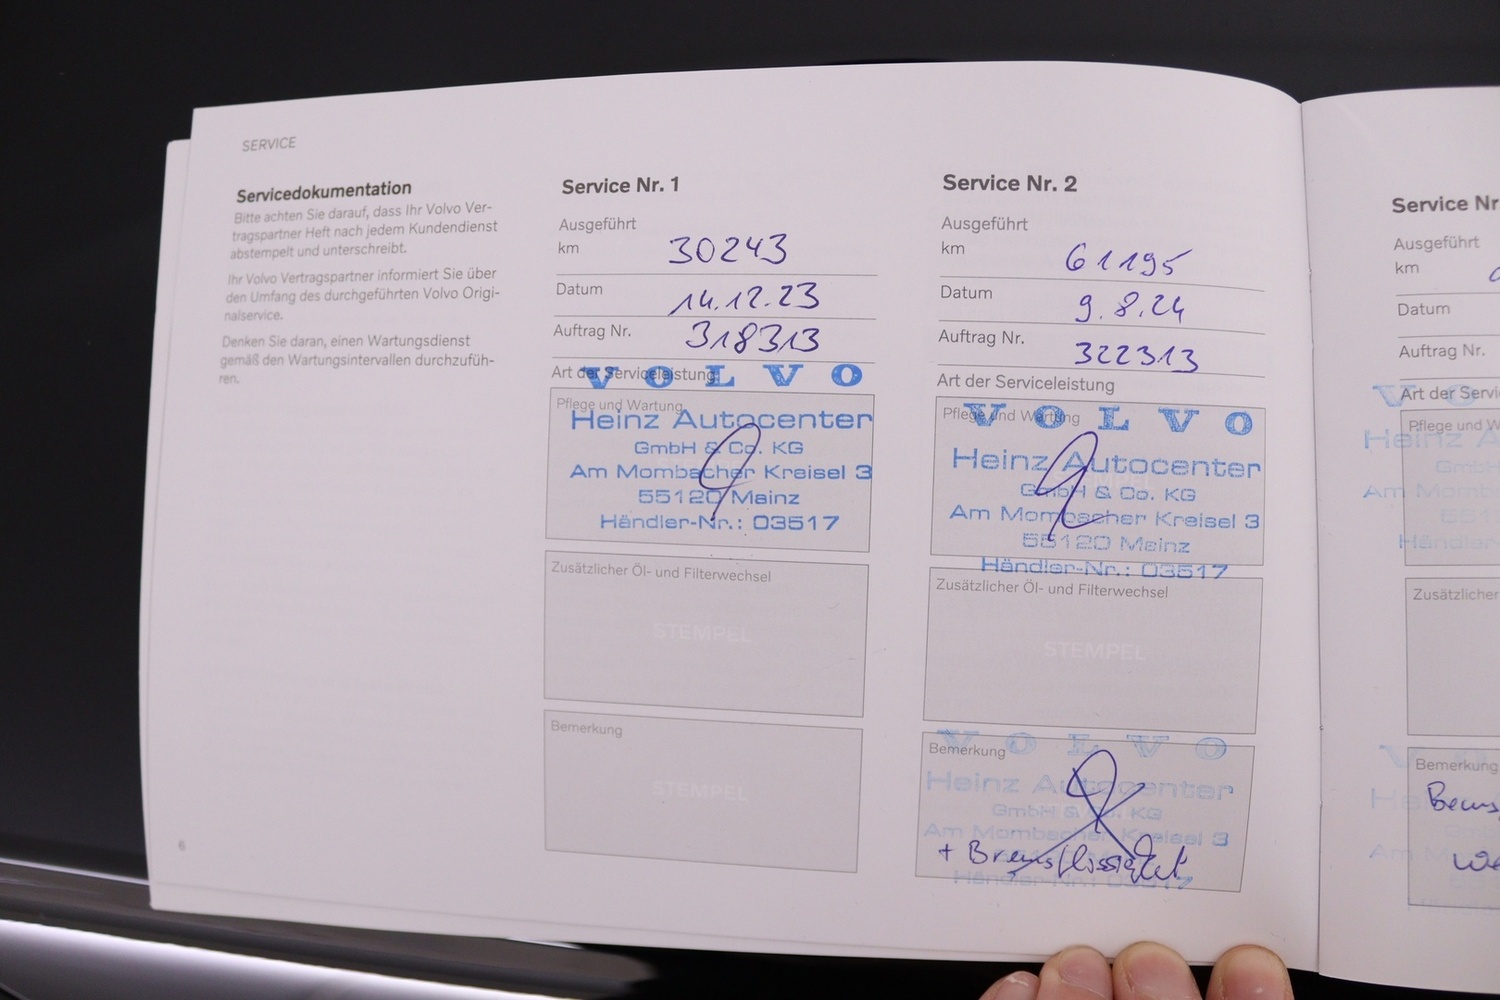 SERVICE
Servicedokumentation
Bitte achten Sie darauf, dass Ihr Volvo Ver-
tragspartner Heft nach jedem Kundendienst
abstempelt und unterschreibt.
Ihr Volvo Vertragspartner informiert Sie über
den Umfang des durchgeführten Volvo Origi-
nalservice.
Denken Sie daran, einen Wartungsdienst
gemäß den Wartungsintervallen durchzufüh-
ren.
6
Service Nr. 1
Ausgeführt
km 30243
Datum 14.12.23
Auftrag Nr. 318313
Art der Serviceleistung
VOLVO
Pflege und Wartung
Heinz Autocenter
GmbH & Co. KG
Am Mombacher Kreisel 3
55120 Mainz
Händler-Nr.: 03517
Zusätzlicher Öl- und Filterwechsel
STEMPEL
Bemerkung
STEMPEL
Service Nr. 2
Ausgeführt
km 61195
Datum 9.8.24
Auftrag Nr. 322313
Art der Serviceleistung
Pflege und Wartung
VOLVO
Heinz Autocenter
GmbH & Co. KG
Am Mombacher Kreisel 3
55120 Mainz
Händler-Nr.: 03517
Zusätzlicher Öl- und Filterwechsel
STEMPEL
VOLVO
Bemerkung
Heinz Autocenter
GmbH & Co. KG
Am Mombacher Kreisel 3
+ Bremsflüssigkeit
Händler-Nr.: 03517
Service Nr
Ausgeführt
km
Datum
Auftrag Nr.
Art der Servi
Pflege und W
Heinz A
GmbH
Am Momb
Händler
Zusätzlicher
Bemerkung
Brems